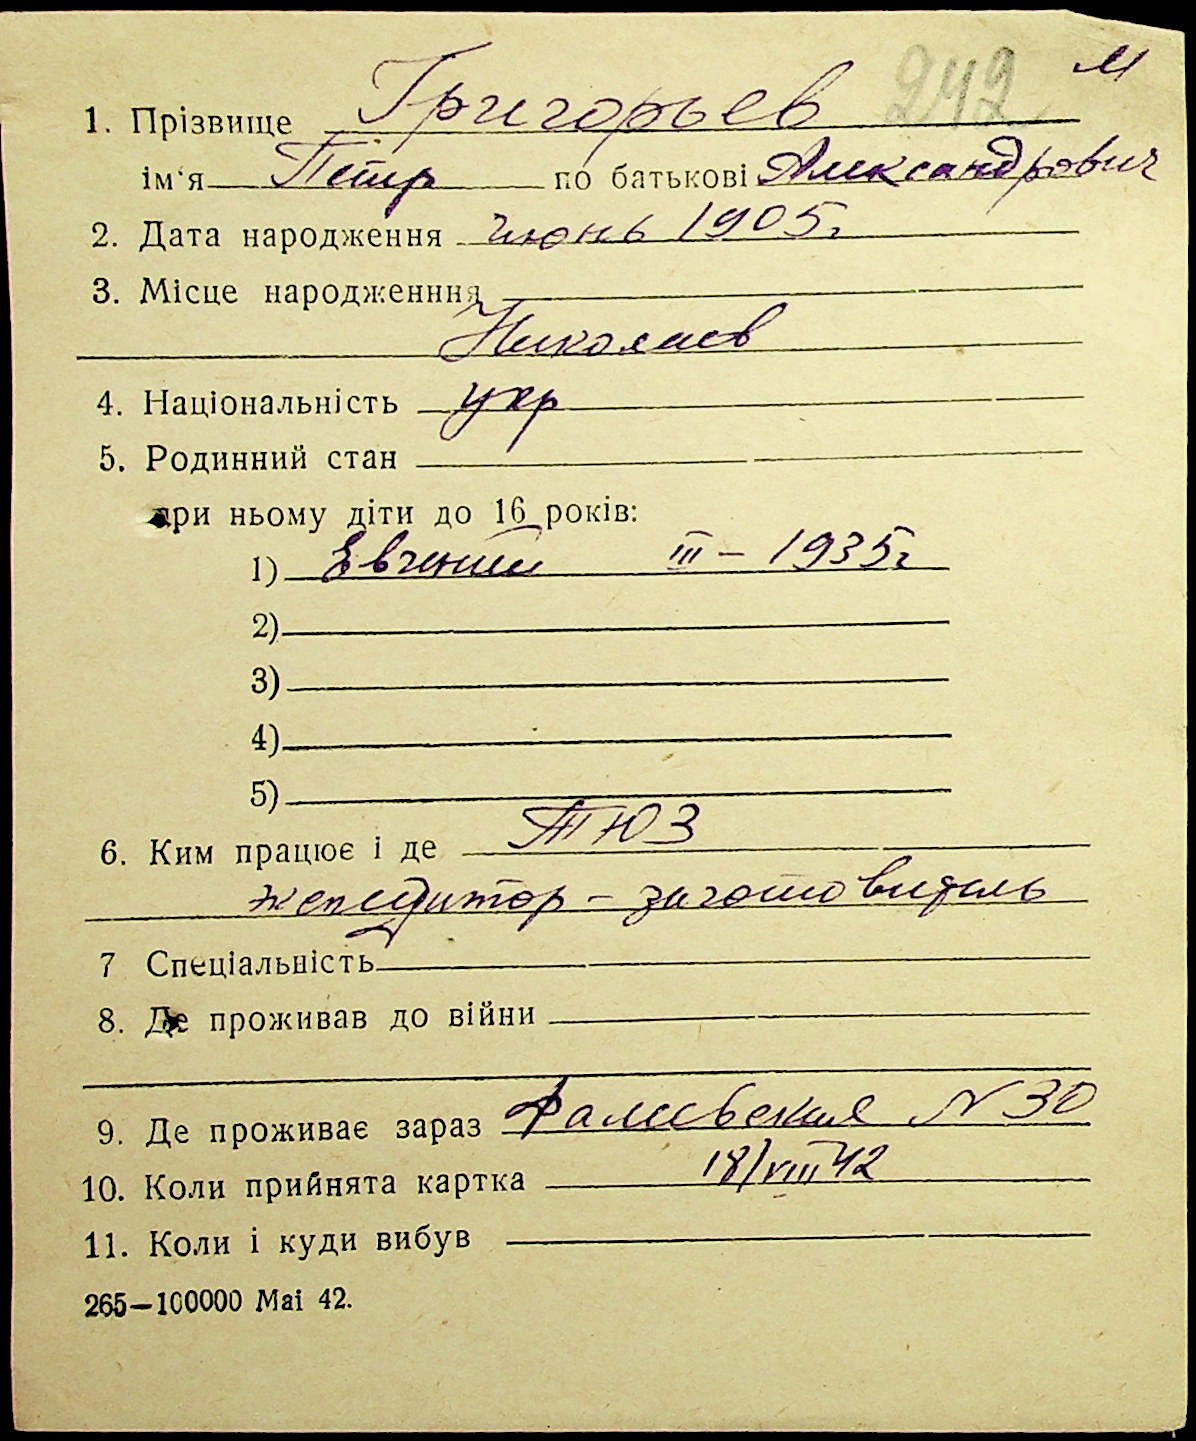 242 м
1. Прізвище Григорьев
ім'я Петр по батькові Александрович
2. Дата народження июнь 1905г
3. Місце народженння
Николаев
4. Національність укр
5. Родинний стан
при ньому діти до 16 років:
1) Евгений III – 1935г
2)
3)
4)
5)
6. Ким працює і де ТЮЗ
экспедитор – заготовитель
7 Спеціальність
8. Де проживав до війни
9. Де проживає зараз N 30
10. Коли прийнята картка 18/VIII 42
11. Коли і куди вибув
265—100000 Mai 42.